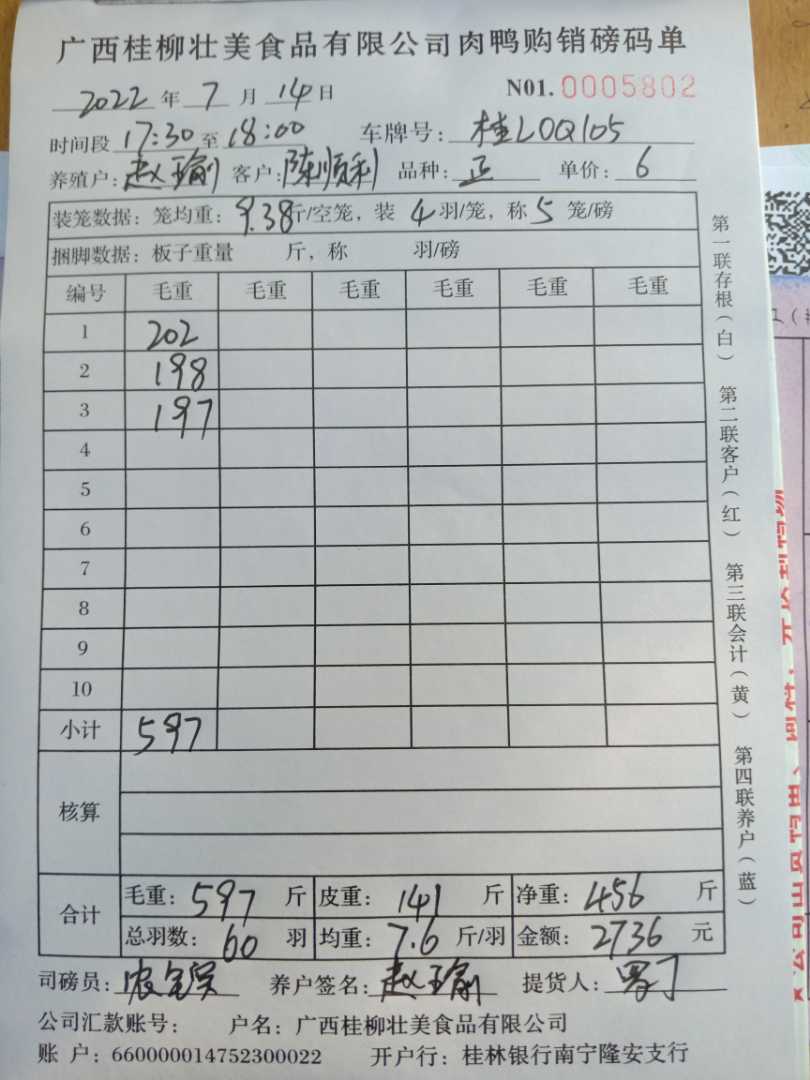 广西桂柳壮美食品有限公司肉鸭购销磅码单
2022 年 7 月 14 日 N01. 0005802
时间段 17:30 至 18:00 车牌号: 桂L0Q105
养殖户: 赵瑜 客户: 陈顺利 品种: 正 单价: 6
装笼数据: 笼均重: 9.38 斤/空笼, 装 4 羽/笼, 称 5 笼/磅
捆脚数据: 板子重量 斤, 称 羽/磅
编号 毛重 毛重 毛重 毛重 毛重 毛重
1 202
2 198
3 197
4
5
6
7
8
9
10
小计 597
核算
合计
毛重: 597 斤 皮重: 141 斤 净重: 456 斤
总羽数: 60 羽 均重: 7.6 斤/羽 金额: 2736 元
司磅员: 养户签名: 赵瑜 提货人:
公司汇款账号: 户名: 广西桂柳壮美食品有限公司
账 户: 660000014752300022 开户行: 桂林银行南宁隆安支行
第一联存根(白) 第二联客户(红) 第三联会计(黄) 第四联养户(蓝)